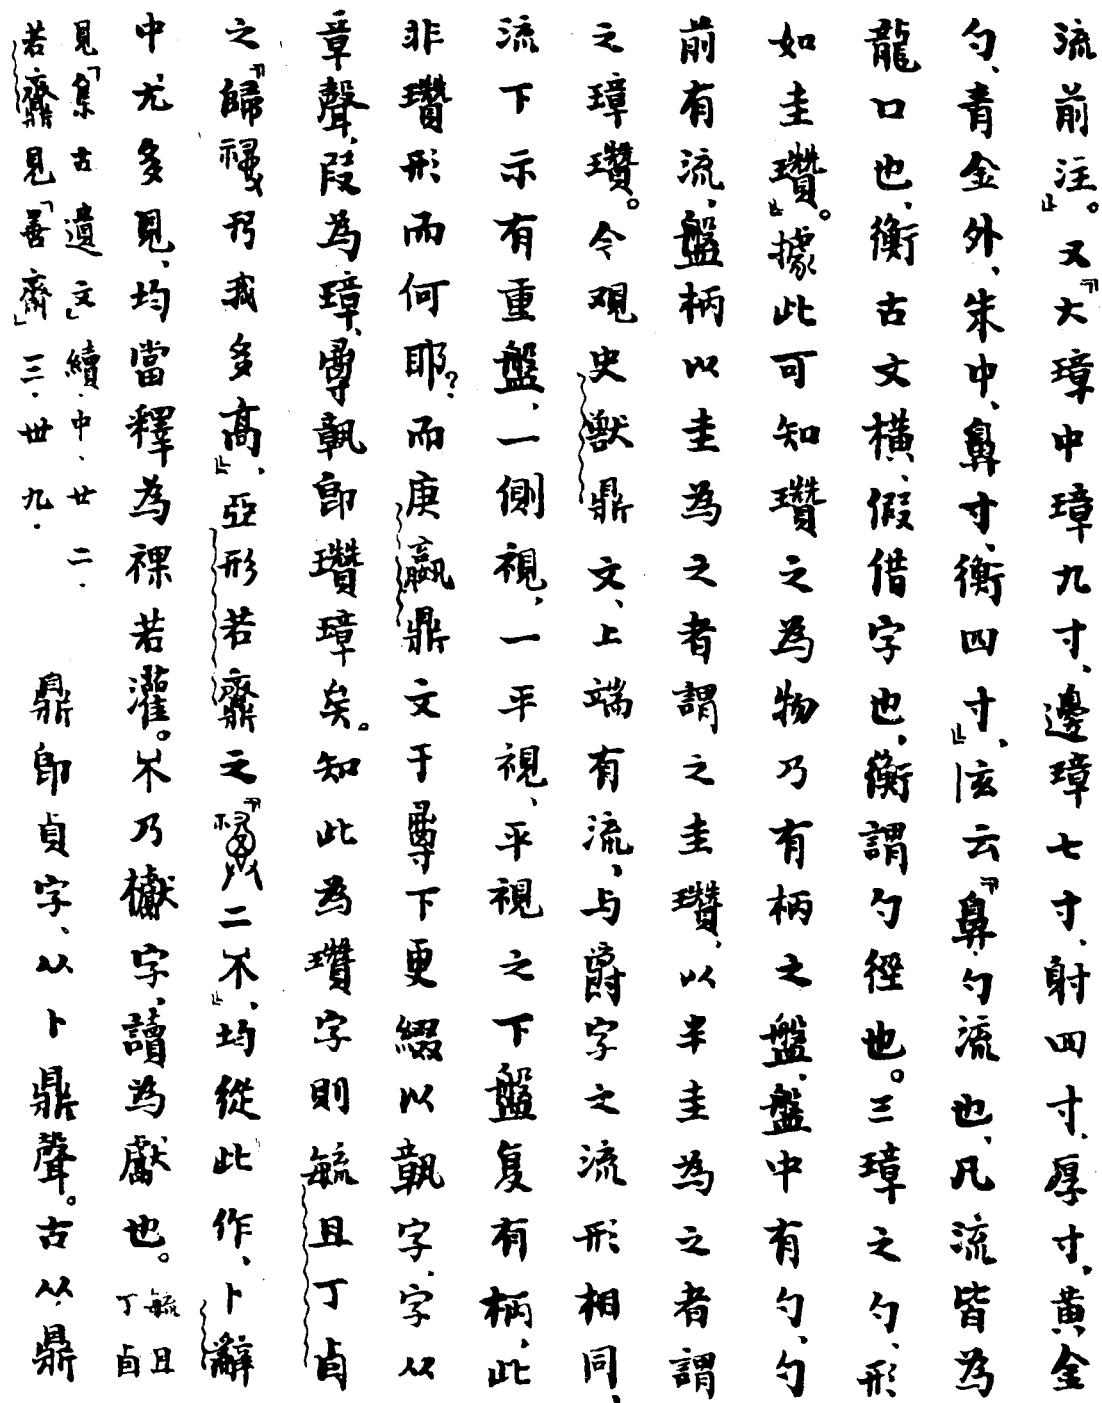 流前注。』又『大璋中璋九寸、邊璋七寸、射四寸、厚寸。黃金
勺、青金外、朱中、鼻寸、衡四寸』、注云『鼻、勺流也、凡流皆為
龍口也、衡古文橫、假借字也、衡謂勺徑也。三璋之勺、形
如圭瓚』。據此可知瓚之為物乃有柄之盤、盤中有勺、勺
前有流、盤柄以圭為之者謂之圭瓚、以半圭為之者謂
之璋瓚。今觀史獸鼎文、上端有流、与爵字之流形相同、
流下示有重盤、一側視、一平視、平視之下盤复有柄、此
非瓚形而何耶？而庚嬴鼎文于下更綴以字、字从
章聲、段為璋、即瓚璋矣。知此為瓚字則毓且丁卣
之『歸我多高』、亞形若鼎之『二不』、均從此作、卜辭
中尤多見、均當釋為祼若灌。不乃字、讀為獻也。毓且
丁卣
見『集古遺文』續·中·廿二·
若鼎見『善齋』三·卅九·
鼎即貞字、从卜鼎聲。古从鼎